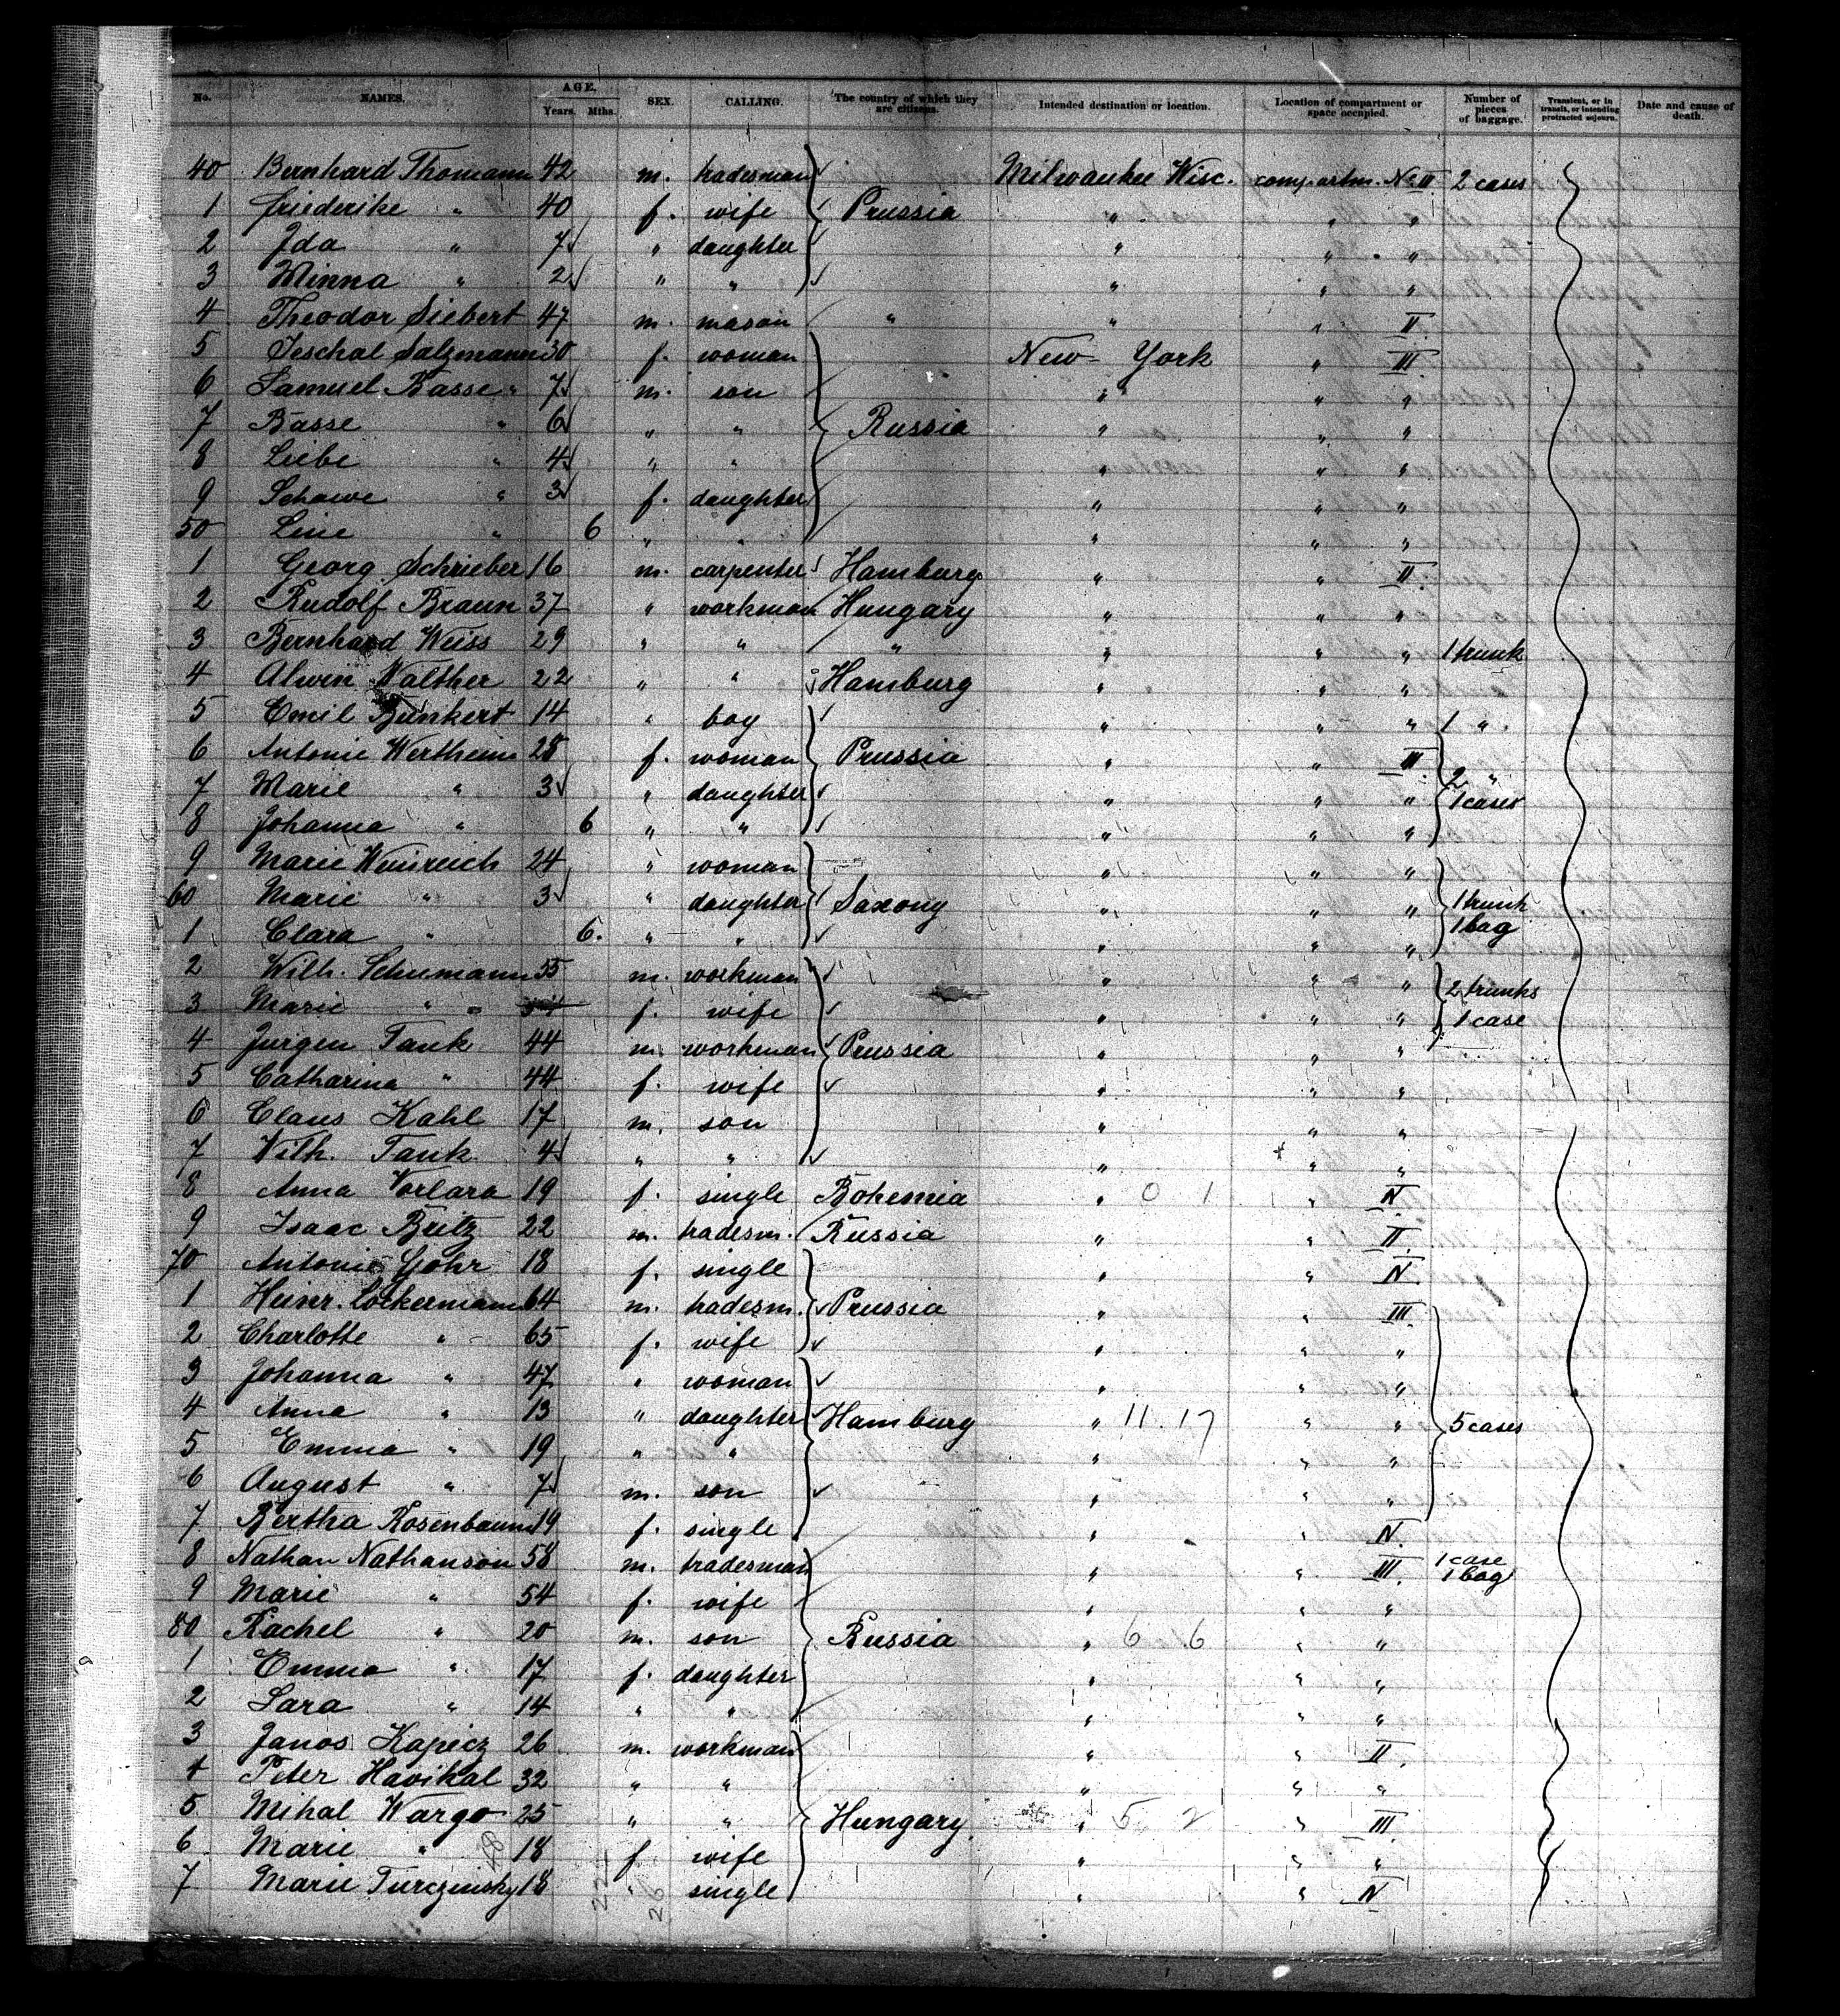 No. NAMES. AGE. Years. Mths. SEX. CALLING. The country of which they are citizens. Intended destination or location. Location of compartment or space occupied. Number of pieces of baggage. Transient, or in transit, or intending protracted sojourn. Date and cause of death.
40 Bernhard Thomann 42 m. tradesman Milwaukee Wisc. compartm. No II 2 cases
1 Friederike " 40 f. wife Prussia " " "
2 Ida " 7 " daughter " " "
3 Minna " 2 " " " " "
4 Theodor Siebert 47 m. mason " " " II
5 Jeschal Salzmann 30 f. woman New York " III
6 Samuel Basse " 7 m. son " " "
7 Basse " 6 " " Russia " " "
8 Liebe " 4 " " " " "
9 Schawe " 3 f. daughter " " "
50 Line " 6 " " " " "
1 Georg Schrieber 16 m. carpenter Hamburg " " II
2 Rudolf Braun 37 " workman Hungary " " "
3 Bernhard Weiss 29 " " " " " " 1 trunk
4 Alwin Walther 22 " " Hamburg " " "
5 Emil Bunkert 14 " boy " " " 1 "
6 Antonie Wertheim 28 f. woman Prussia " " III
7 Marie " 3 " daughter " " " 2 " 1 cases
8 Johanna " 6 " " " " "
9 Marie Weinreich 24 " woman " " "
60 Marie " 3 " daughter Saxony " " " 1 trunk
1 Clara " 6. " " " " " 1 bag
2 Wilh. Schumann 55 m. workman " " " 2 trunks
3 Marie " f. wife " " " 1 case
4 Jürgen Tank 44 m. workman Prussia " " "
5 Catharina " 44 f. wife " " "
6 Claus Kahl 17 m. son " " "
7 Wilh. Tank 4 " " " " "
8 Anna Vorlara 19 f. single Bohemia " 0 1 " IV
9 Isaac Britz 22 m. tradesm. Russia " " II.
70 Antonie Gohr 18 f. single " " IV
1 Heinr. Lockermann 64 m. tradesm. Prussia " " III
2 Charlotte " 65 f. wife " " "
3 Johanna " 47 " woman " " "
4 Anna " 13 " daughter Hamburg " 11. 17 " " 5 cases
5 Emma " 19 " " " " "
6 August " 7 m. son " " "
7 Bertha Rosenbaum 19 f. single " " IV.
8 Nathan Nathanson 58 m. tradesman " " III. 1 case 1 bag
9 Marie " 54 f. wife " " "
80 Rachel " 20 m. son Russia " 6 6 " "
1 Emma " 17 f. daughter " " "
2 Sara " 14 " " " " "
3 Janos Kapicz 26 m. workman " " II.
4 Peter Havikal 32 " " " " "
5 Mihal Wargo 25 " " Hungary " 5 2 " III.
6 Marie " 18 f wife " " "
7 Marie Turczinsky 18 " single " " IV